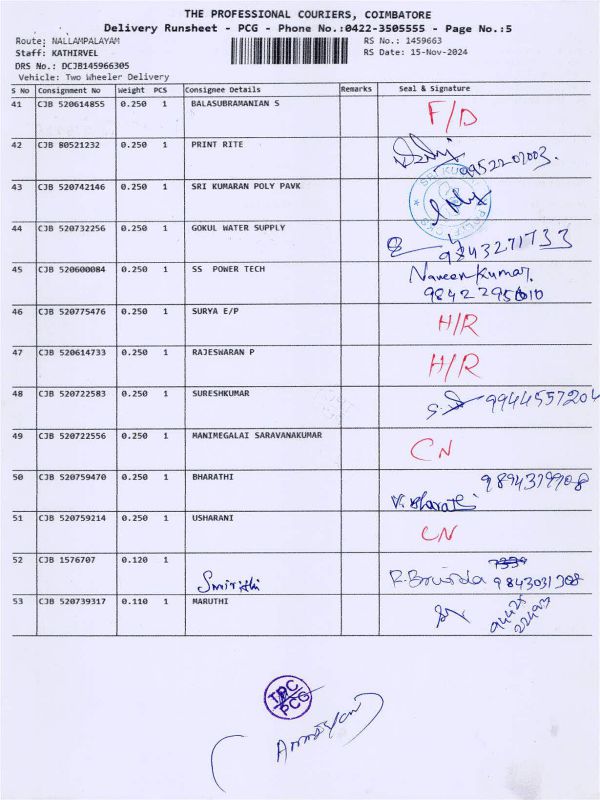 THE PROFESSIONAL COURIERS, COIMBATORE
Delivery Runsheet - PCG - Phone No.:0422-3505555 - Page No.:5
Route: NALLAMPALAYAM RS No.: 1459663
Staff: KATHIRVEL RS Date: 15-Nov-2024
DRS No.: DCJB145966305
Vehicle: Two Wheeler Delivery
S No Consignment No Weight PCS Consignee Details Remarks Seal & Signature
41 CJB 520614855 0.250 1 BALASUBRAMANIAN S F/D
42 CJB 80521232 0.250 1 PRINT RITE 9952207003.
43 CJB 520742146 0.250 1 SRI KUMARAN POLY PAVK
44 CJB 520732256 0.250 1 GOKUL WATER SUPPLY 9843271733
45 CJB 520600084 0.250 1 SS POWER TECH Naveen Kumar.
98422
46 CJB 520775476 0.250 1 SURYA E/P H/R
47 CJB 520614733 0.250 1 RAJESWARAN P H/R
48 CJB 520722583 0.250 1 SURESHKUMAR 9944557204
49 CJB 520722556 0.250 1 MANIMEGALAI SARAVANAKUMAR CN
50 CJB 520759470 0.250 1 BHARATHI 9894379908
V. Bharathi
51 CJB 520759214 0.250 1 USHARANI CN
52 CJB 1576707 0.120 1 9843031308
53 CJB 520739317 0.110 1 MARUTHI 94425
22493
TPC
PCG